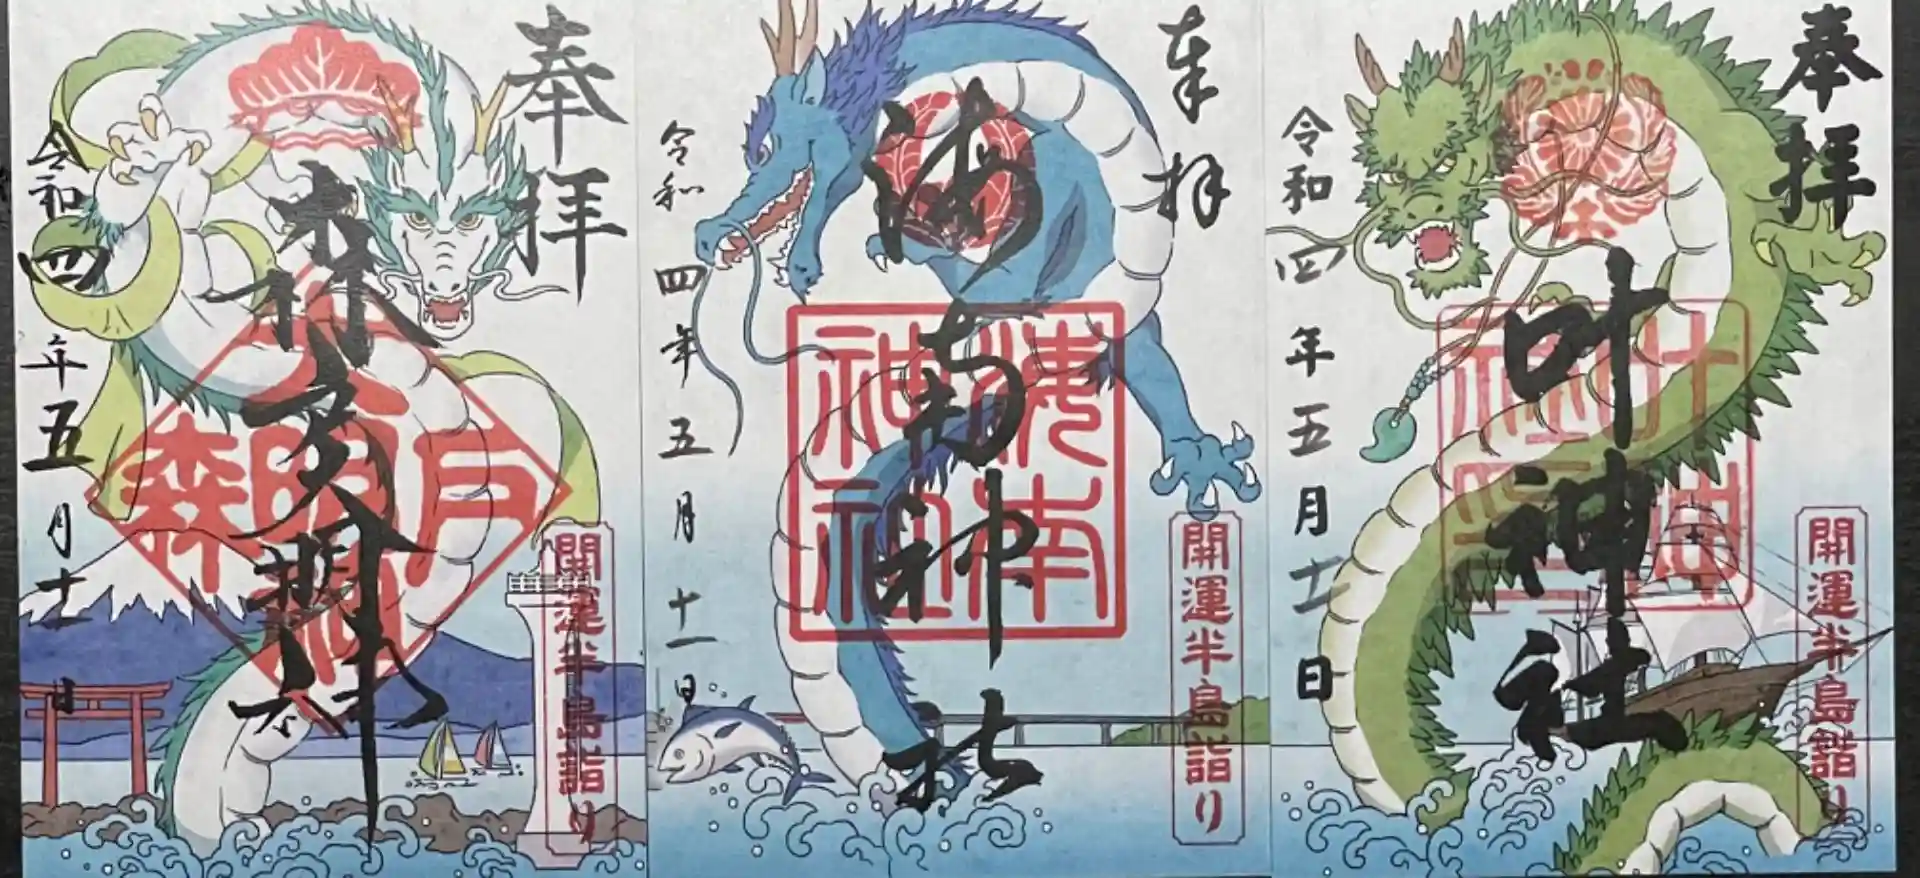 奉拝
大明神
森戸
開運半島詣り
令和四年五月十一日
奉拝
海南神社
海南
神社
開運半島詣り
令和四年五月十一日
奉拝
叶神社
叶神
社印
開運半島詣り
令和四年五月十一日